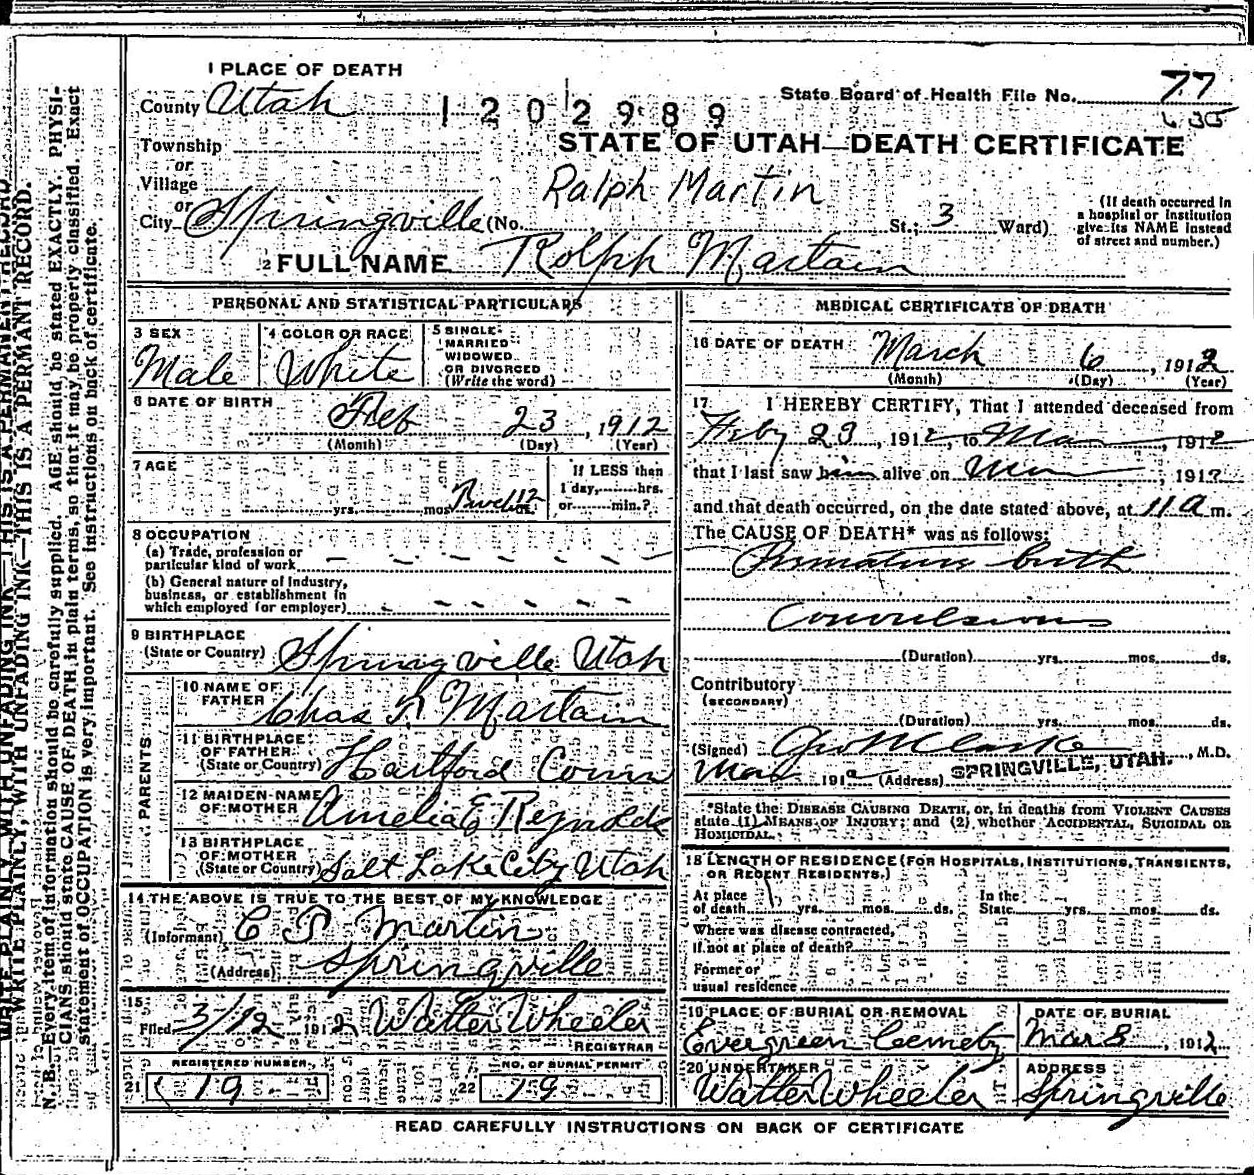 1 PLACE OF DEATH
County Utah
1202989
State Board of Health File No. 77
Township
STATE OF UTAH—DEATH CERTIFICATE
or
Village
Ralph Martin
or
City Springville (No. St.; 3 Ward)
(If death occurred in
a hospital or institution
give its NAME instead
of street and number.)
2 FULL NAME Rolph Martain
PERSONAL AND STATISTICAL PARTICULARS
3 SEX
Male
4 COLOR OR RACE
White
5 SINGLE
MARRIED
WIDOWED
OR DIVORCED
(Write the word)
6 DATE OF BIRTH Feb 23, 1912
(Month) (Day) (Year)
7 AGE
If LESS than
1 day, hrs.
or min.?
yrs. mos. 12
8 OCCUPATION
(a) Trade, profession or
particular kind of work
(b) General nature of Industry,
business, or establishment in
which employed (or employer)
9 BIRTHPLACE
(State or Country) Springville Utah
PARENTS
10 NAME OF
FATHER Chas P. Martain
11 BIRTHPLACE
OF FATHER
(State or Country) Hartford Conn
12 MAIDEN NAME
OF MOTHER Amelia E Reynolds
13 BIRTHPLACE
OF MOTHER
(State or Country) Salt Lake City Utah
14 THE ABOVE IS TRUE TO THE BEST OF MY KNOWLEDGE
(Informant) C P Martin
(Address) Springville
15
Filed 3/12 1912 Walter Wheeler
REGISTRAR
REGISTERED NUMBER. NO. OF BURIAL PERMIT
21 19 22 19
MEDICAL CERTIFICATE OF DEATH
16 DATE OF DEATH March 6, 1912
(Month) (Day) (Year)
17 I HEREBY CERTIFY, That I attended deceased from
Feby 23, 1912, to Mar, 1912
that I last saw him alive on Mar, 191?
and that death occurred, on the date stated above, at 11 a m.
The CAUSE OF DEATH* was as follows:
Premature birth
Convulsions
(Duration) yrs. mos. ds.
Contributory
(SECONDARY)
(Duration) yrs. mos. ds.
(Signed) Geo M Clarke, M.D.
Mar 191 (Address) SPRINGVILLE, UTAH.
*State the DISEASE CAUSING DEATH, or, in deaths from VIOLENT CAUSES
state (1) MEANS OF INJURY; and (2) whether ACCIDENTAL, SUICIDAL OR
HOMICIDAL.
18 LENGTH OF RESIDENCE (FOR HOSPITALS, INSTITUTIONS, TRANSIENTS,
OR RECENT RESIDENTS.)
At place In the
of death yrs. mos. ds. State yrs. mos. ds.
Where was disease contracted,
If not at place of death?
Former or
usual residence
19 PLACE OF BURIAL OR REMOVAL
Evergreen Cemety
DATE OF BURIAL
Mar 8, 1912
20 UNDERTAKER
Walter Wheeler
ADDRESS
Springville
READ CAREFULLY INSTRUCTIONS ON BACK OF CERTIFICATE
WRITE PLAINLY, WITH UNFADING INK—THIS IS A PERMANENT RECORD.
N. B.—Every item of information should be carefully supplied. AGE should be stated EXACTLY. PHYSI-
CIANS should state CAUSE OF DEATH in plain terms, so that it may be properly classified. Exact
statement of OCCUPATION is very important. See instructions on back of certificate.